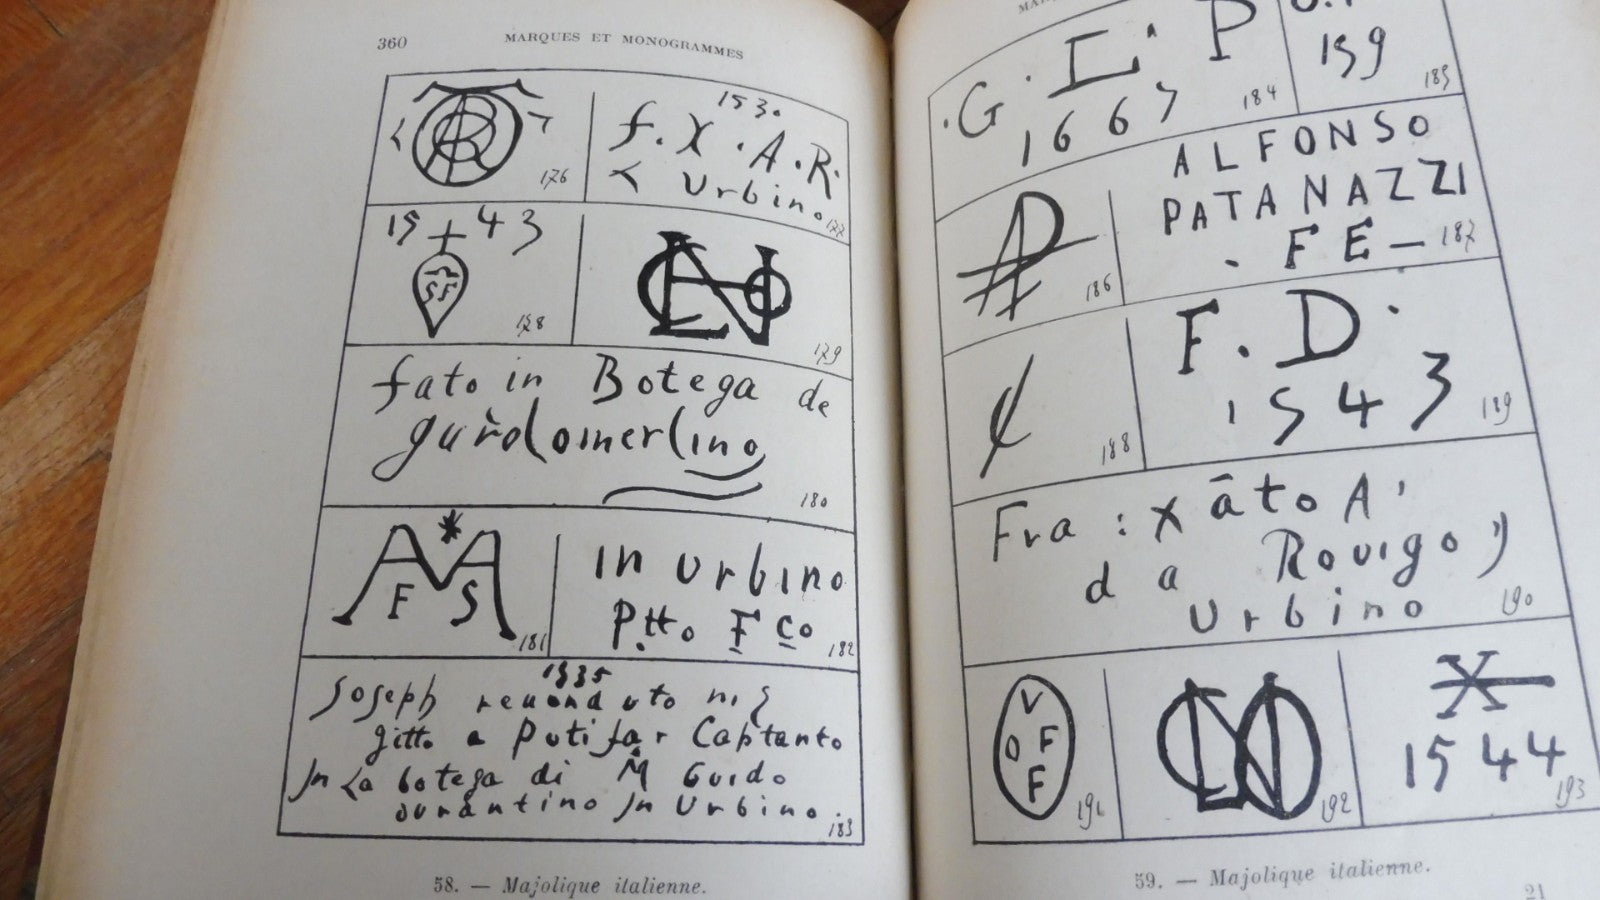 360
MARQUES ET MONOGRAMMES
176
1530
f. X. A. R.
Urbino
177
15 43
SF
178
179
fato in Botega de
180
F S
181
in urbino
Ptto Fco
182
1535
Joseph
gitto a Putifar Captanto
In La botega di M Guido
durantino In Urbino.
183
58. — Majolique italienne.
. G. L. P
1667
184
159
185
186
ALFONSO
PATANAZZI
. FE —
187
188
F. D.
1543
189
Fra : Xāto A'
da Rovigo
Urbino
190
V
O F
F
191
192
X
1544
193
59. — Majolique italienne.
21